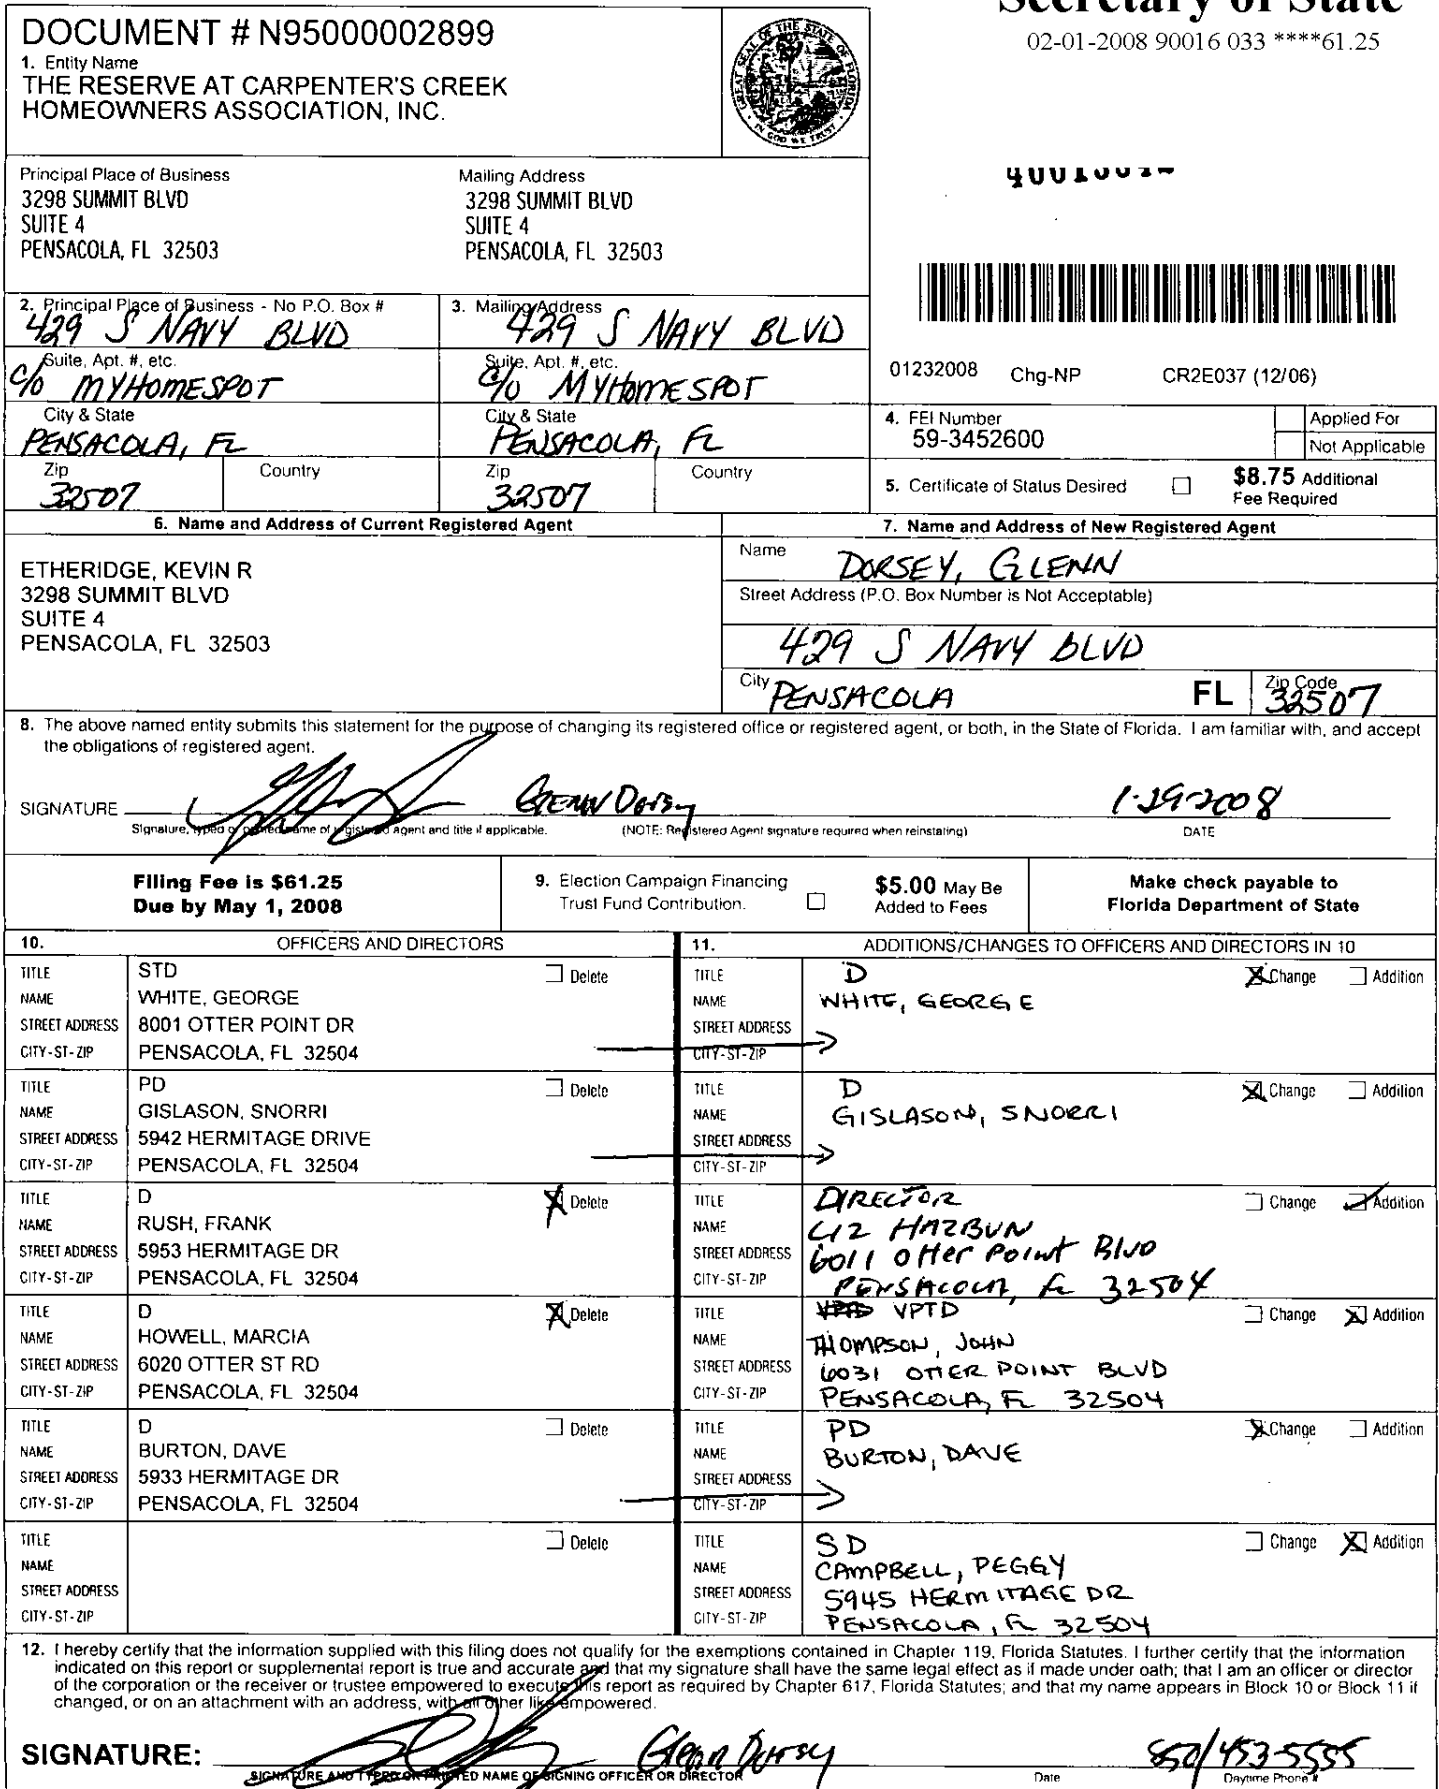 Secretary of State
02-01-2008 90016 033 ****61.25
DOCUMENT # N95000002899
1. Entity Name
THE RESERVE AT CARPENTER'S CREEK
HOMEOWNERS ASSOCIATION, INC.
GREAT SEAL OF THE STATE OF FLORIDA
IN GOD WE TRUST
Principal Place of Business
3298 SUMMIT BLVD
SUITE 4
PENSACOLA, FL 32503
Mailing Address
3298 SUMMIT BLVD
SUITE 4
PENSACOLA, FL 32503
2. Principal Place of Business - No P.O. Box #
429 S NAVY BLVD
Suite, Apt. #, etc.
c/o MYHOMESPOT
City & State
PENSACOLA, FL
Zip
32507
Country
3. Mailing Address
429 S NAVY BLVD
Suite, Apt. #, etc.
c/o MYHOMESPOT
City & State
PENSACOLA, FL
Zip
32507
Country
01232008 Chg-NP CR2E037 (12/06)
4. FEI Number
59-3452600
Applied For
Not Applicable
5. Certificate of Status Desired
$8.75 Additional
Fee Required
6. Name and Address of Current Registered Agent
ETHERIDGE, KEVIN R
3298 SUMMIT BLVD
SUITE 4
PENSACOLA, FL 32503
7. Name and Address of New Registered Agent
Name
DORSEY, GLENN
Street Address (P.O. Box Number is Not Acceptable)
429 S NAVY BLVD
City PENSACOLA FL Zip Code 32507
8. The above named entity submits this statement for the purpose of changing its registered office or registered agent, or both, in the State of Florida. I am familiar with, and accept
the obligations of registered agent.
SIGNATURE Glenn Dorsey 1-29-2008
Signature, typed or printed name of registered agent and title if applicable. (NOTE: Registered Agent signature required when reinstating) DATE
Filing Fee is $61.25
Due by May 1, 2008
9. Election Campaign Financing
Trust Fund Contribution.
$5.00 May Be
Added to Fees
Make check payable to
Florida Department of State
10. OFFICERS AND DIRECTORS
TITLE STD Delete
NAME WHITE, GEORGE
STREET ADDRESS 8001 OTTER POINT DR
CITY-ST-ZIP PENSACOLA, FL 32504
TITLE PD Delete
NAME GISLASON, SNORRI
STREET ADDRESS 5942 HERMITAGE DRIVE
CITY-ST-ZIP PENSACOLA, FL 32504
TITLE D X Delete
NAME RUSH, FRANK
STREET ADDRESS 5953 HERMITAGE DR
CITY-ST-ZIP PENSACOLA, FL 32504
TITLE D X Delete
NAME HOWELL, MARCIA
STREET ADDRESS 6020 OTTER ST RD
CITY-ST-ZIP PENSACOLA, FL 32504
TITLE D Delete
NAME BURTON, DAVE
STREET ADDRESS 5933 HERMITAGE DR
CITY-ST-ZIP PENSACOLA, FL 32504
TITLE Delete
NAME
STREET ADDRESS
CITY-ST-ZIP
11. ADDITIONS/CHANGES TO OFFICERS AND DIRECTORS IN 10
TITLE D X Change Addition
NAME WHITE, GEORGE
STREET ADDRESS
CITY-ST-ZIP
TITLE D X Change Addition
NAME GISLASON, SNORRI
STREET ADDRESS
CITY-ST-ZIP
TITLE DIRECTOR Change Addition
NAME LIZ HAZBUN
STREET ADDRESS 6011 Otter Point Blvd
CITY-ST-ZIP PENSACOLA, FL 32504
TITLE VPTD Change X Addition
NAME THOMPSON, JOHN
STREET ADDRESS 6031 OTTER POINT BLVD
CITY-ST-ZIP PENSACOLA, FL 32504
TITLE PD X Change Addition
NAME BURTON, DAVE
STREET ADDRESS
CITY-ST-ZIP
TITLE SD Change X Addition
NAME CAMPBELL, PEGGY
STREET ADDRESS 5945 HERMITAGE DR
CITY-ST-ZIP PENSACOLA, FL 32504
12. I hereby certify that the information supplied with this filing does not qualify for the exemptions contained in Chapter 119, Florida Statutes. I further certify that the information
indicated on this report or supplemental report is true and accurate and that my signature shall have the same legal effect as if made under oath; that I am an officer or director
of the corporation or the receiver or trustee empowered to execute this report as required by Chapter 617, Florida Statutes; and that my name appears in Block 10 or Block 11 if
changed, or on an attachment with an address, with all other like empowered.
SIGNATURE: Glenn Dorsey 850/453-5555
SIGNATURE AND TYPED OR PRINTED NAME OF SIGNING OFFICER OR DIRECTOR Date Daytime Phone #